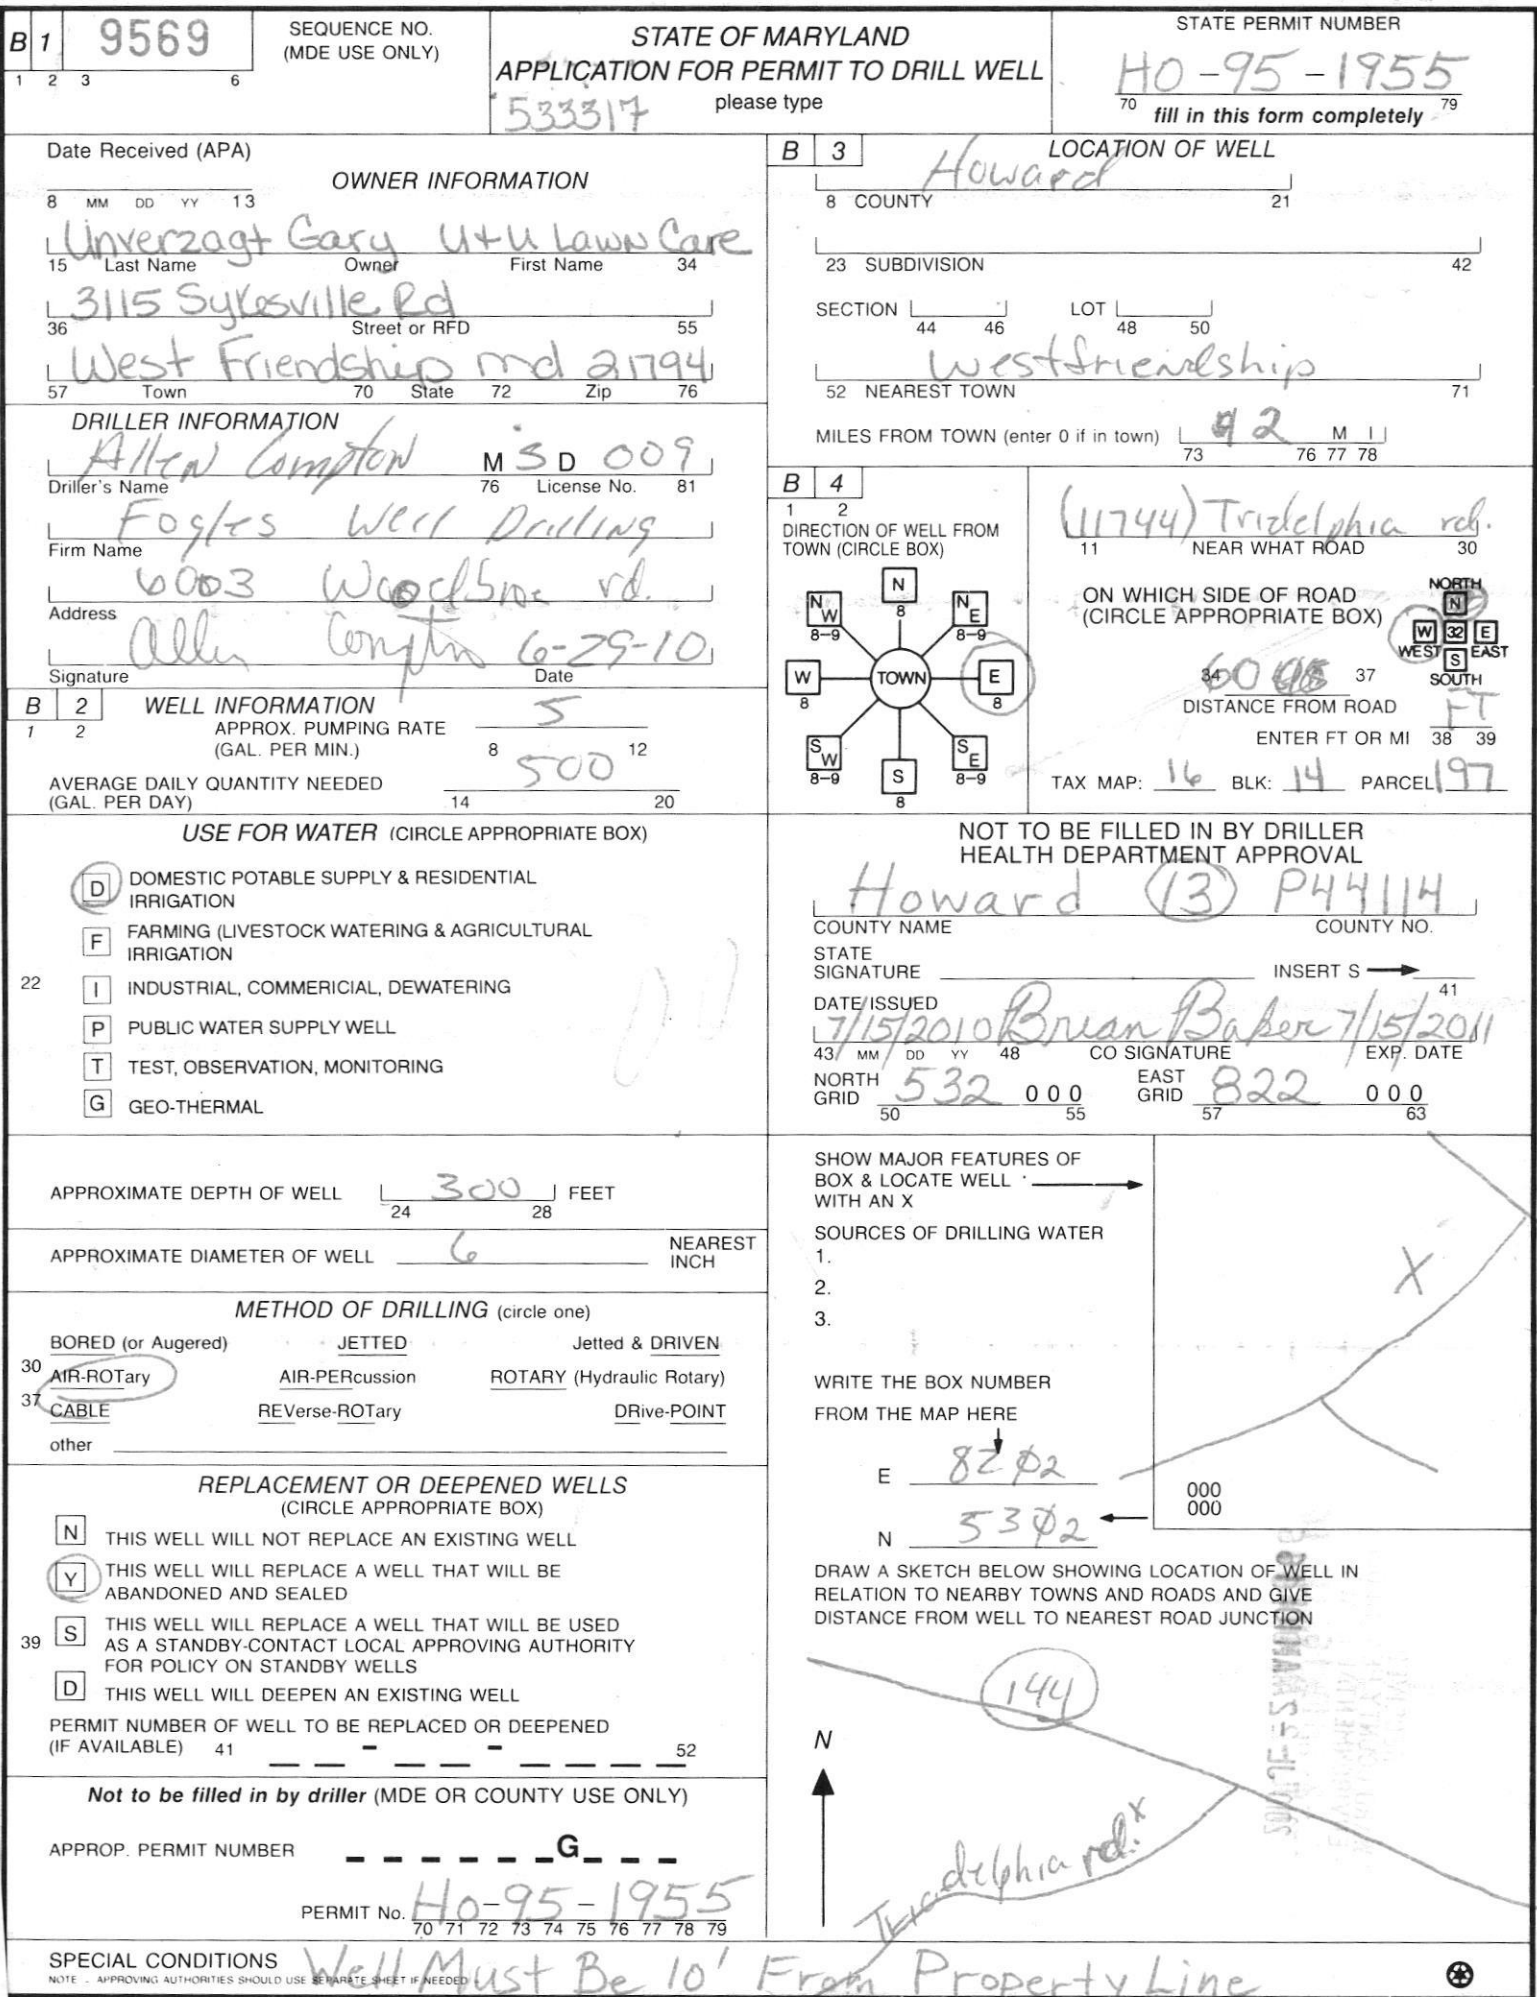 B 1 9569
1 2 3 6
SEQUENCE NO.
(MDE USE ONLY)
STATE OF MARYLAND
APPLICATION FOR PERMIT TO DRILL WELL
533317 please type
STATE PERMIT NUMBER
HO-95-1955
70 fill in this form completely 79
Date Received (APA)
OWNER INFORMATION
8 MM DD YY 13
Unverzagt Gary U+U Lawn Care
15 Last Name Owner First Name 34
3115 Sykesville Rd
36 Street or RFD 55
West Friendship md 21794
57 Town 70 State 72 Zip 76
DRILLER INFORMATION
Allen Compton M S D 009
Driller's Name 76 License No. 81
Fogles Well Drilling
Firm Name
6003 Woodbine rd.
Address
Allen Compton 6-29-10
Signature Date
B 2 WELL INFORMATION
1 2
APPROX. PUMPING RATE 5
(GAL. PER MIN.) 8 12
AVERAGE DAILY QUANTITY NEEDED 500
(GAL. PER DAY) 14 20
USE FOR WATER (CIRCLE APPROPRIATE BOX)
D DOMESTIC POTABLE SUPPLY & RESIDENTIAL
IRRIGATION
F FARMING (LIVESTOCK WATERING & AGRICULTURAL
IRRIGATION
22 I INDUSTRIAL, COMMERICIAL, DEWATERING
P PUBLIC WATER SUPPLY WELL
T TEST, OBSERVATION, MONITORING
G GEO-THERMAL
APPROXIMATE DEPTH OF WELL 300 FEET
24 28
APPROXIMATE DIAMETER OF WELL 6 NEAREST
INCH
METHOD OF DRILLING (circle one)
BORED (or Augered) JETTED Jetted & DRIVEN
30 AIR-ROTary AIR-PERcussion ROTARY (Hydraulic Rotary)
37 CABLE REVerse-ROTary DRive-POINT
other
REPLACEMENT OR DEEPENED WELLS
(CIRCLE APPROPRIATE BOX)
N THIS WELL WILL NOT REPLACE AN EXISTING WELL
Y THIS WELL WILL REPLACE A WELL THAT WILL BE
ABANDONED AND SEALED
39 S THIS WELL WILL REPLACE A WELL THAT WILL BE USED
AS A STANDBY-CONTACT LOCAL APPROVING AUTHORITY
FOR POLICY ON STANDBY WELLS
D THIS WELL WILL DEEPEN AN EXISTING WELL
PERMIT NUMBER OF WELL TO BE REPLACED OR DEEPENED
(IF AVAILABLE) 41 - - 52
Not to be filled in by driller (MDE OR COUNTY USE ONLY)
APPROP. PERMIT NUMBER G
PERMIT No. Ho-95-1955
70 71 72 73 74 75 76 77 78 79
B 3 LOCATION OF WELL
Howard
8 COUNTY 21
23 SUBDIVISION 42
SECTION LOT
44 46 48 50
westfriendship
52 NEAREST TOWN 71
MILES FROM TOWN (enter 0 if in town) 2 M I
73 76 77 78
B 4
1 2
DIRECTION OF WELL FROM
TOWN (CIRCLE BOX)
N
8
NW NE
8-9 8-9
W TOWN E
8 8
SW SE
8-9 8-9
S
8
(11744) Tridelphia rd.
11 NEAR WHAT ROAD 30
ON WHICH SIDE OF ROAD
(CIRCLE APPROPRIATE BOX)
NORTH
N
W 32 E
WEST EAST
S
SOUTH
34 60 37
DISTANCE FROM ROAD
FT
ENTER FT OR MI 38 39
TAX MAP: 16 BLK: 14 PARCEL 197
NOT TO BE FILLED IN BY DRILLER
HEALTH DEPARTMENT APPROVAL
Howard 13 P44114
COUNTY NAME COUNTY NO.
STATE
SIGNATURE INSERT S
41
DATE ISSUED
7/15/2010 Brian Baker 7/15/2011
43 MM DD YY 48 CO SIGNATURE EXP. DATE
NORTH GRID 532 000 EAST GRID 822 000
50 55 57 63
SHOW MAJOR FEATURES OF
BOX & LOCATE WELL
WITH AN X
X
SOURCES OF DRILLING WATER
1.
2.
3.
WRITE THE BOX NUMBER
FROM THE MAP HERE
E 8202
N 5302
000
000
DRAW A SKETCH BELOW SHOWING LOCATION OF WELL IN
RELATION TO NEARBY TOWNS AND ROADS AND GIVE
DISTANCE FROM WELL TO NEAREST ROAD JUNCTION
144
N
X
Triadelphia rd.
SPECIAL CONDITIONS Well Must Be 10' From Property Line
NOTE - APPROVING AUTHORITIES SHOULD USE SEPARATE SHEET IF NEEDED